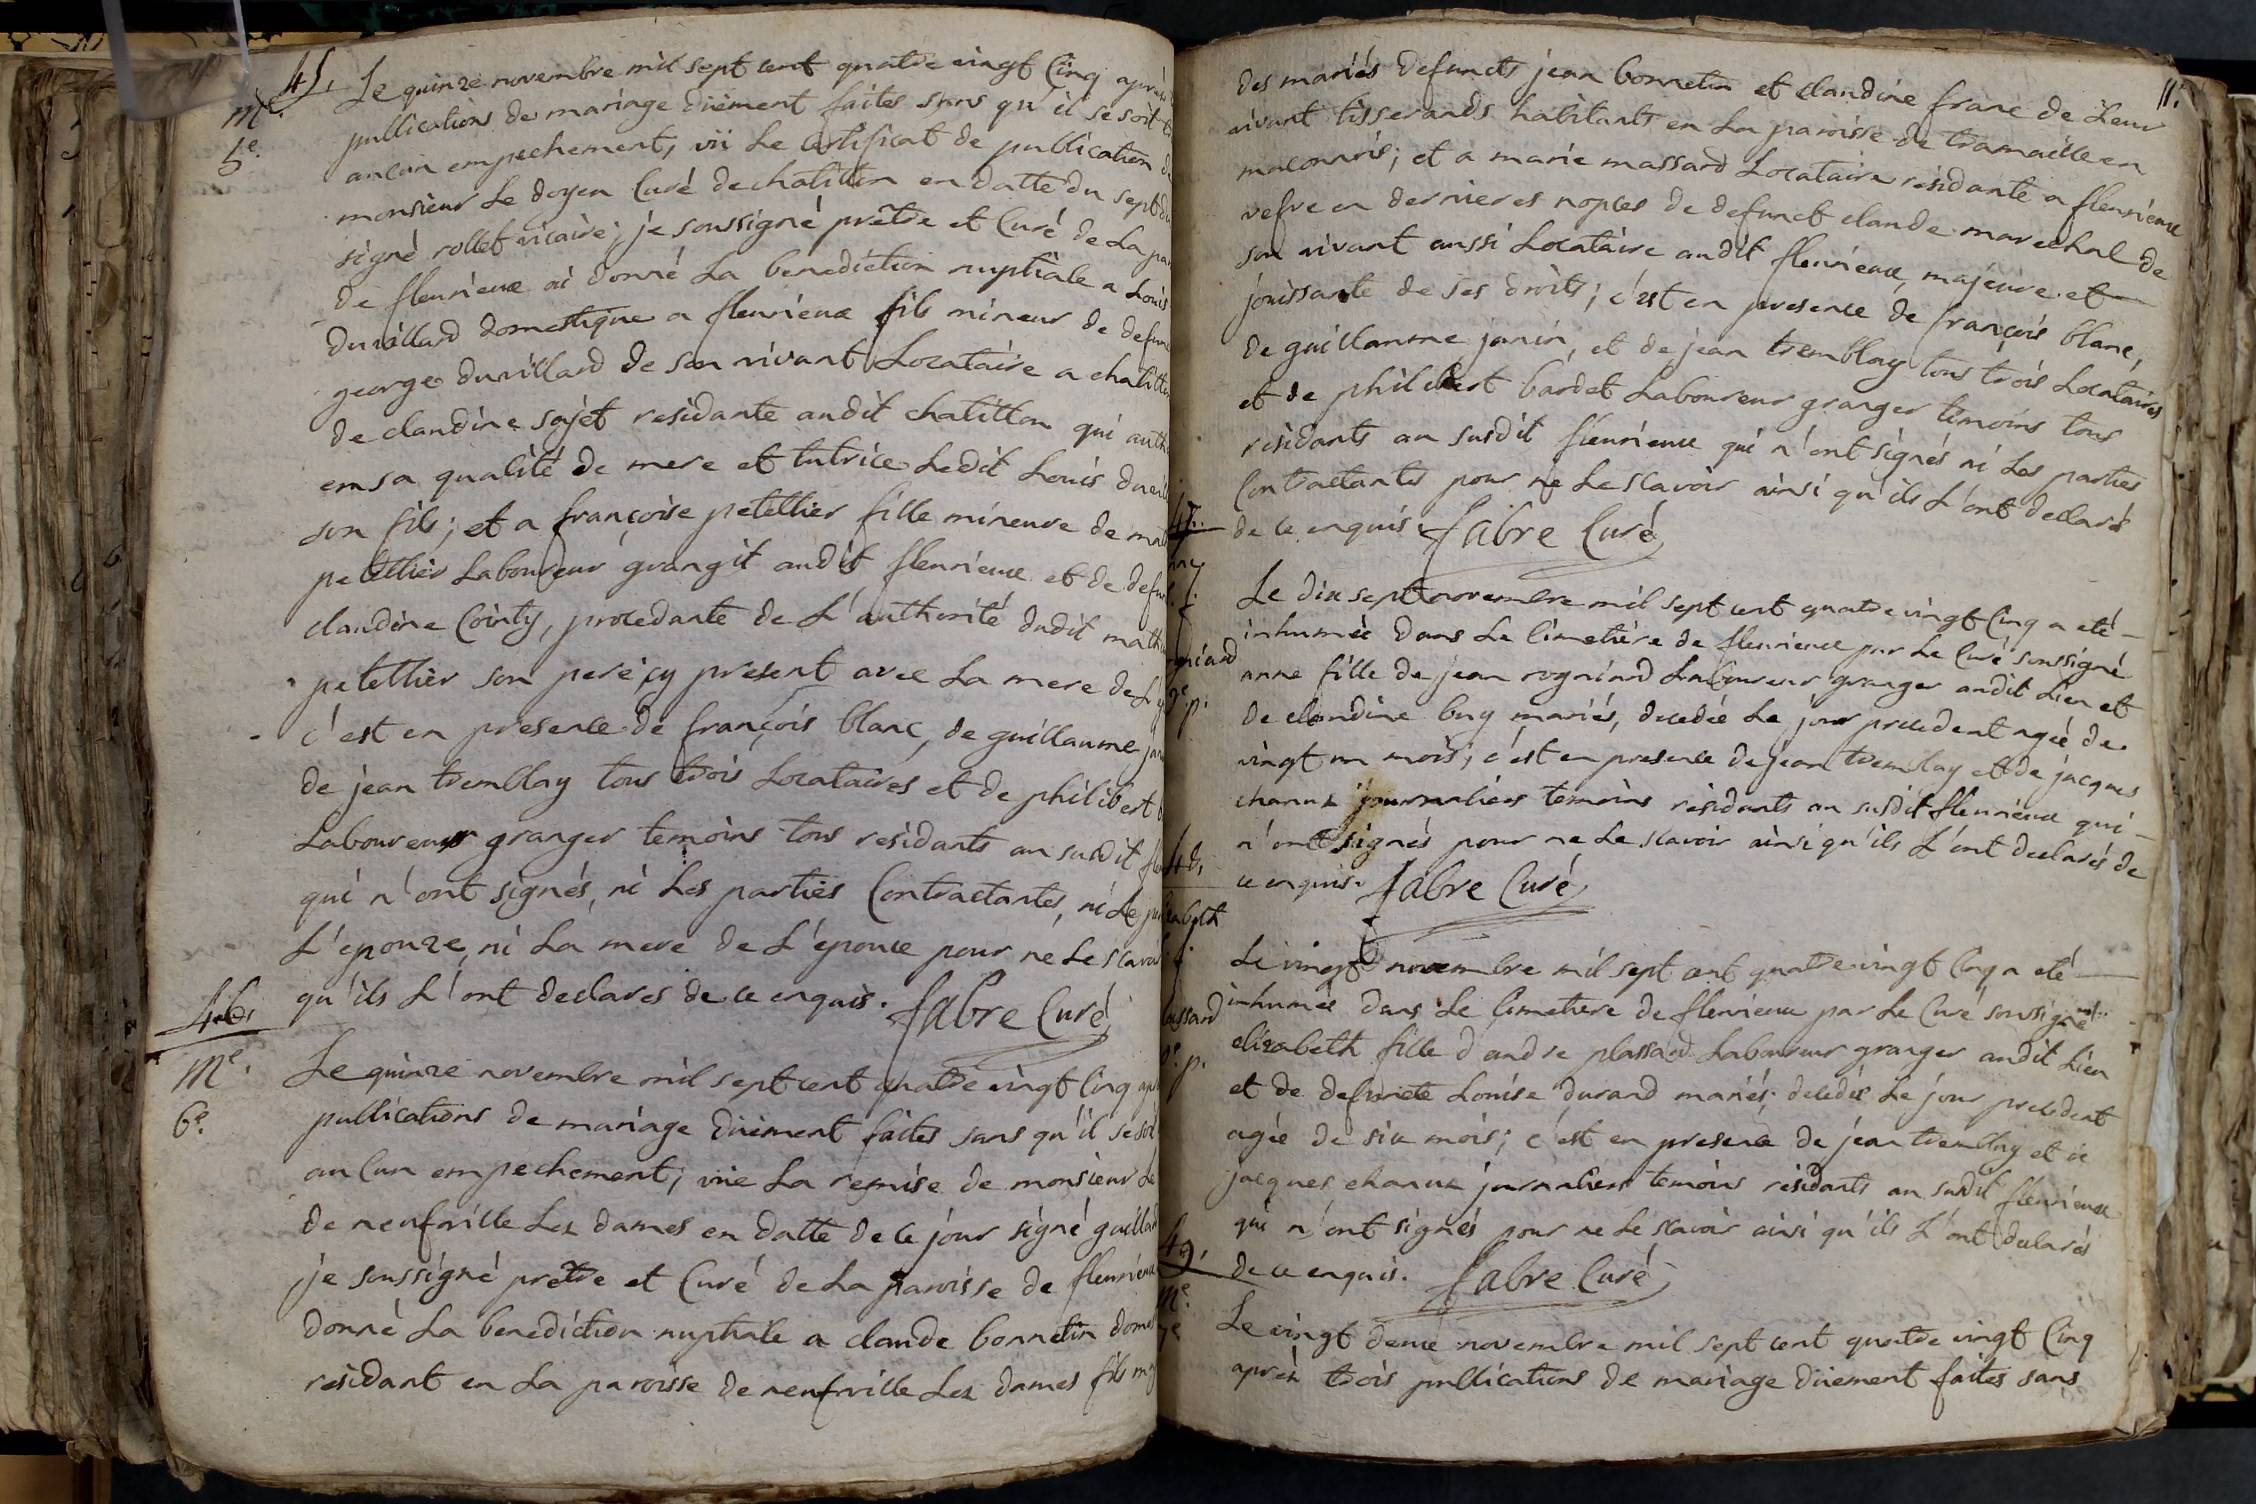 45.
me.
5e.
Le quinze novembre mil sept cent quatre vingt Cinq après
publications de mariage düement faites sans qu'il se soit
aucun empechement, vü Le Certificat de publication de
monsieur Le doyen Curé de chatillon en datte du sept du
signé rollet vicaire; je soussigné prêtre et Curé de La
de fleurieux ai donné La benediction nuptiale a Louis
Duvillard domestique a fleurieux fils mineur de
george duvillard de son vivant Locataire a
de claudine sojet residante audit chatillon qui
en sa qualité de mere et tutrice Ledit Louis
son fils; et a françoise petellier fille mineure de
petellier Laboureur grangit audit fleurieux et de
claudine Cointy, procedante de L'authorité dudit
petellier son pere içy present avec La mere de
c'est en presence de françois blanc, de guillaume
de jean tremblay tous trois Locataires et de philibert
Laboureur granger temoins tous residants au susdit
qui n'ont signés, ni Les parties Contractantes, ni Le
L'epouze, ni La mere de L'epoux pour ne Le scavoir
qu'ils L'ont declarés de ce enquis. fabre Curé
46.
me.
6e.
Le quinze novembre mil sept cent quatre vingt Cinq
publications de mariage düement faites sans qu'il se soit
aucun empechement; vüe La remise de monsieur Le
de neufville Les dames en datte de ce jour signé
je soussigné prêtre et Curé de La paroisse de fleurieux
donné La benediction nuptiale a claude bonnetin
residant en La paroisse de neufville Les dames fils
11.
des mariés defuncts jean bonnetin et claudine franc de Leur
vivant tisserands habitants en La paroisse de tramaille en
maconnois; et a marie massard Locataire residante a fleurieux
vefve en dernieres nopces de defunct claude marechal de
son vivant aussi Locataire audit fleurieux, majeure et
jouissante de ses droits; c'est en presence de françois blanc,
de guillaume janin, et de jean tremblay tous trois Locataires
et de philibert bardet Laboureur granger temoins tous
residants au susdit fleurieux qui n'ont signés ni Les parties
Contractantes pour ne Le scavoir ainsi qu'ils L'ont declaré
de ce enquis fabre Curé
47.
Le dix sept novembre mil sept cent quatre vingt Cinq a eté
inhumée dans Le Cimetière de fleurieux par Le Curé soussigné
anne fille de jean rogniard Laboureur granger audit Lieu et
de claudine buy mariés, decedée Le jour precedent agée de
vingt un mois; c'est en presence de jean tremblay et de jacques
chanux journaliers temoins residants au susdit fleurieux qui
n'ont signés pour ne Le scavoir ainsi qu'ils L'ont declarés de
ce enquis. fabre Curé
48.
Le vingt novembre mil sept cent quatre vingt Cinq a eté
inhumée dans Le Cimetiere de fleurieux par Le Curé soussigné
elizabeth fille d'andre plassard Laboureur granger audit Lieu
et de defuncte Louise durand mariés; decedée Le jour precedent
agée de six mois; c'est en presence de jean tremblay et de
jacques chanux journaliers temoins residants au susdit fleurieux
qui n'ont signés pour ne Le scavoir ainsi qu'ils L'ont declarés
de ce enquis. fabre Curé
49.
me.
7e
Le vingt deux novembre mil sept cent quatre vingt Cinq
après trois publications de mariage düement faites sans